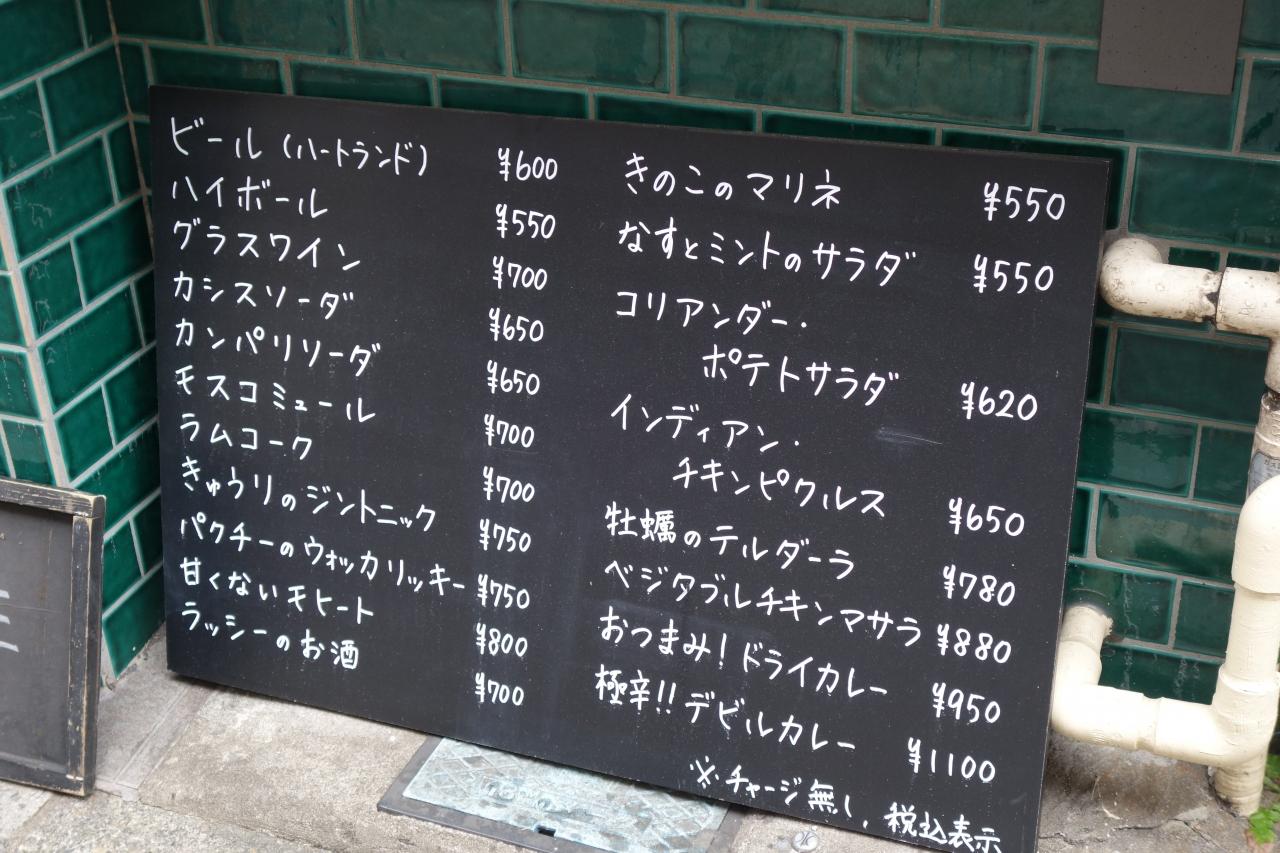 ビール（ハートランド） ¥600
ハイボール ¥550
グラスワイン ¥700
カシスソーダ ¥650
カンパリソーダ ¥650
モスコミュール ¥700
ラムコーク ¥700
きゅうりのジントニック ¥750
パクチーのウォッカリッキー ¥750
甘くないモヒート ¥800
ラッシーのお酒 ¥700
きのこのマリネ ¥550
なすとミントのサラダ ¥550
コリアンダー・
ポテトサラダ ¥620
インディアン・
チキンピクルス ¥650
牡蠣のテルダーラ ¥780
ベジタブルチキンマサラ ¥880
おつまみ！ドライカレー ¥950
極辛!!デビルカレー ¥1100
※チャージ無し，税込表示